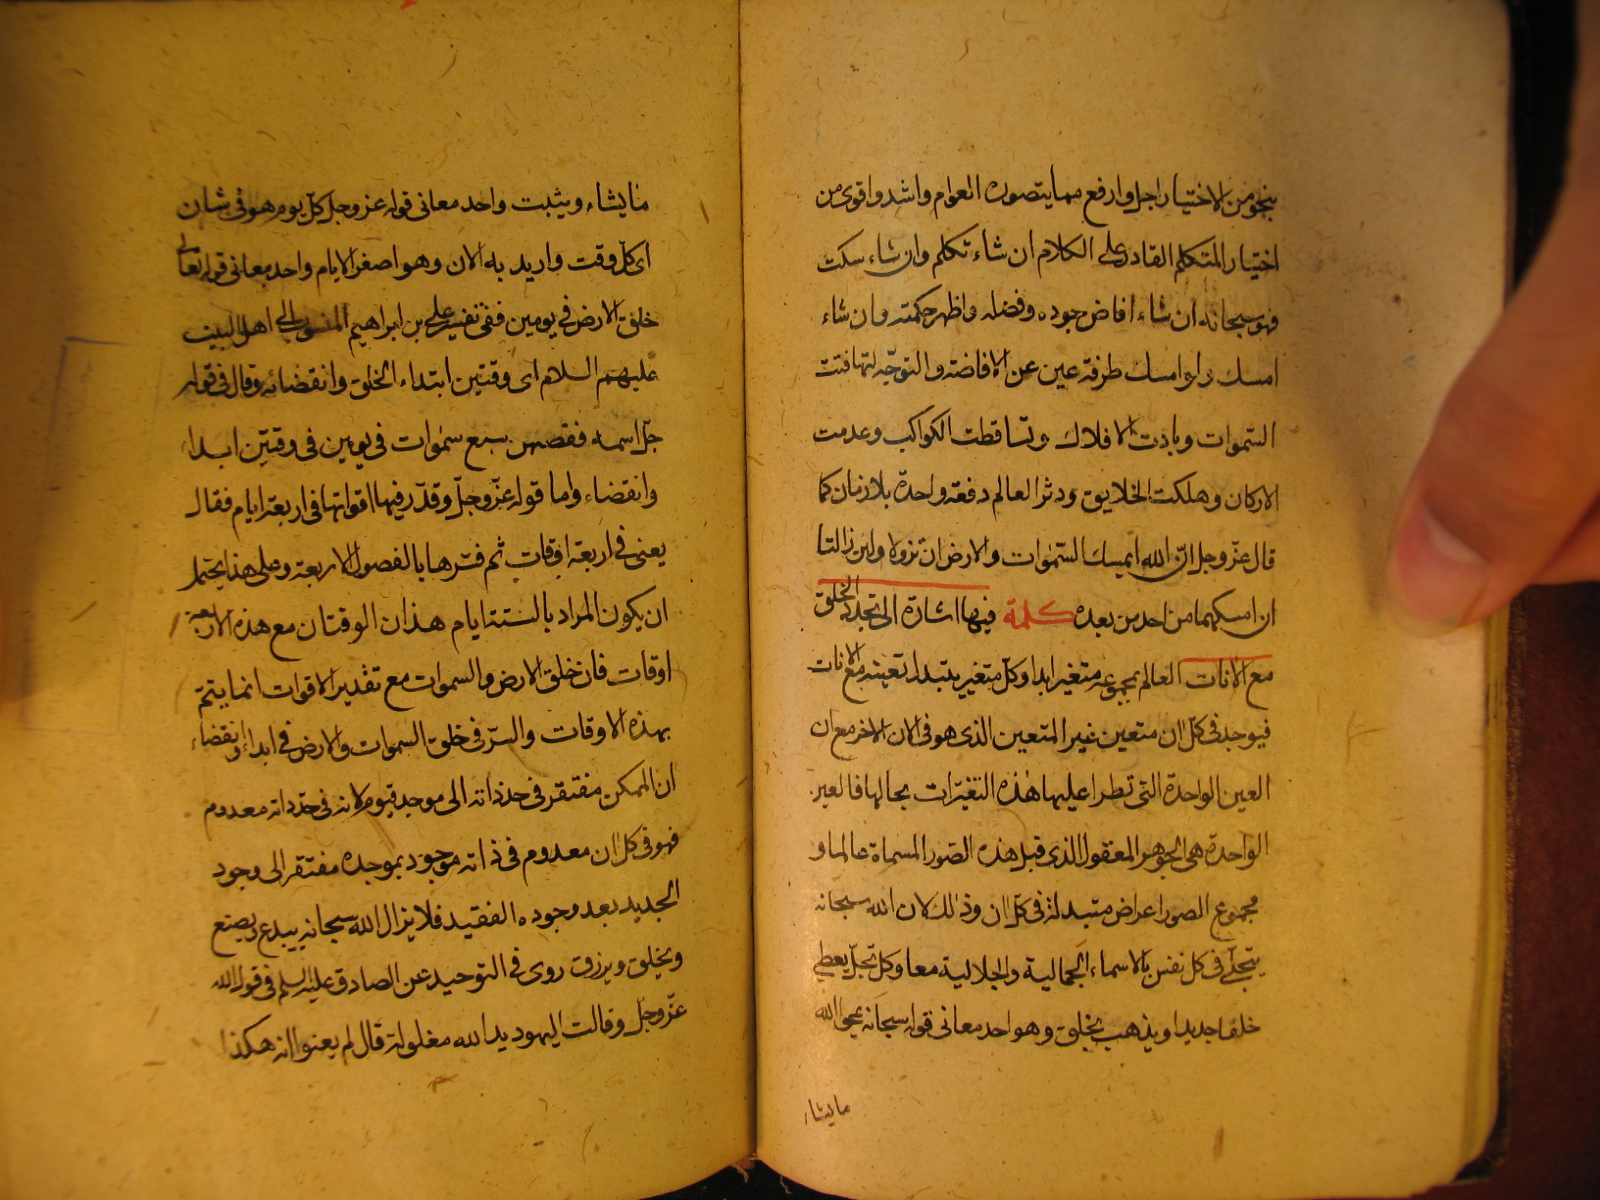 بنحو من الاختيار اجل وارفع مما يتصوره العوام واشد واقوى من
اختيار المتكلم القادر على الكلام ان شاء تكلم وان شاء سكت
فهو سبحانه ان شاء افاض جوده وفضله واظهر حكمته وان شاء
امسك ولو امسك طرفة عين عن الافاضة والتوجّه لتهافتت
السّموات وبادت الافلاك وتساقطت الكواكب وعدمت
الاركان وهلكت الخلايق ودثر العالم دفعة واحدة بلا زمان كما
قال عزّ وجل انّ الله يمسك السّموات والارض ان تزولا ولين زالتا
ان امسكهما من احد من بعده كلمة فيها اشارة الى تجدد الخلق
مع الانات العالم بمجموعه متغير ابدا وكلّ متغير يتبدل تعينه مع الانات
فيوجد فى كلّ ان متعين غير المتعين الذى هو فى الان الاخر مع ان
العين الواحدة التى تطرا عليها هذه التغيّرات بحالها فالعين
الواحدة هى الجوهر المعقول الذى قبل هذه الصّور المسماة عالما و
مجموع الصور اعراض متبدلة فى كلّ ان وذلك لان الله سبحانه
يتجلّى فى كل نفس بالاسماء الجمالية والجلالية معا وكل تجلّ يعطى
خلقا جديدا ويذهب بخلق وهو احد معانى قوله سبحانه يمحو الله
ما يشاء
ما يشاء ويثبت واحد معانى قوله عز وجل كلّ يوم هو فى شان
اى كلّ وقت واريد به الان وهو اصغر الايام واحد معانى قوله تعالى
خلق الارض فى يومين ففى تفسير على بن ابراهيم المنسوب الى اهل البيت
عليهم السلام اى وقتين ابتداء الخلق وانقضائه وقال فى قوله
جلّ اسمه فقضيهن سبع سموات فى يومين فى وقتين ابداء
وانقضاء واما قوله عزّ وجلّ وقدّر فيها اقواتها فى اربعة ايام فقال
يعنى فى اربعة اوقات ثم فسّرها بالفصول الاربعة وعلى هذا يحتمل
ان يكون المراد بالستة ايام هذان الوقتان مع هذه الاربعة
اوقات فان خلق الارض والسموات مع تقدير الاقوات انما يتمّ
بهذه الاوقات والسرّ فى خلق السموات والارض فى ابداء وانقضاء
ان الممكن مفتقر فى حد ذاته الى موجد قيوم لانه فى حدّ ذاته معدوم
فهو فى كل ان معدوم فى ذاته موجود بموجده مفتقر الى وجود
الجديد بعد وجوده الفقيد فلا يزال الله سبحانه يبدع ويصنع
ويخلق ويرزق روى فى التوحيد عن الصادق عليه السلم فى قول الله
عزّ وجلّ وقالت اليهود يد الله مغلولة قال لم يعنوا انه هكذا